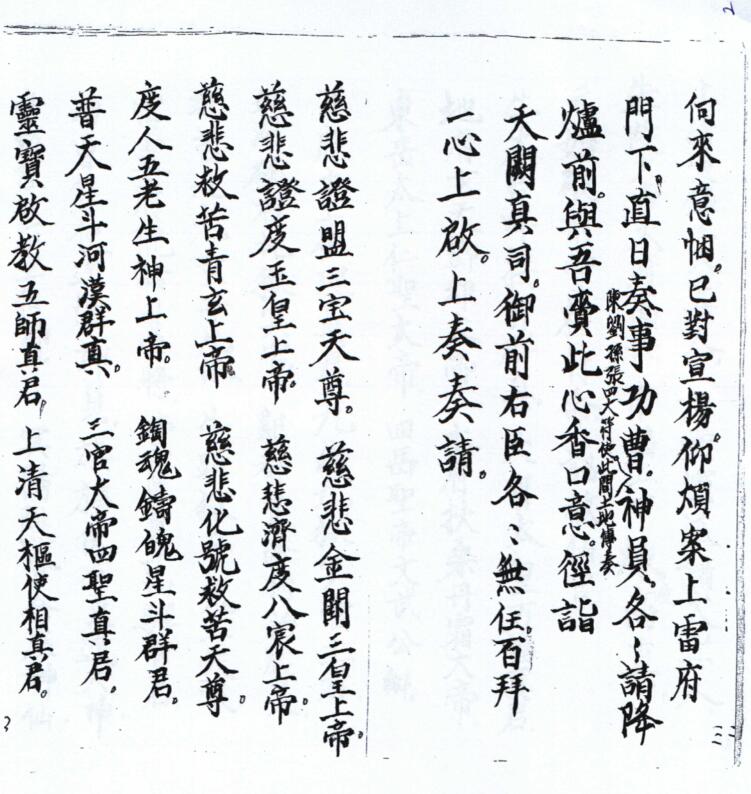 伺來意悃。已對宣楊。仰煩案上雷府
門下。直日奏事功曹。神員。各〻請降
陳劉孫張四大符使此間土地傳奏
爐前。與吾賫此心香口意。徑詣
天闕真司。御前右臣各〻無任。百拜
一心上啟。上奏奏請。
慈悲證盟三宝天尊。 慈悲金闕三皇上帝。
慈悲證度玉皇上帝。 慈悲濟度八宸上帝。
慈悲救苦青玄上帝。 慈悲化號救苦天尊。
度人五老生神上帝。 鍧魂鑄魄星斗群君。
普天星斗河漢群真。 三官大帝四聖真君。
靈寶啟教五師真君。 上清天樞使相真君。